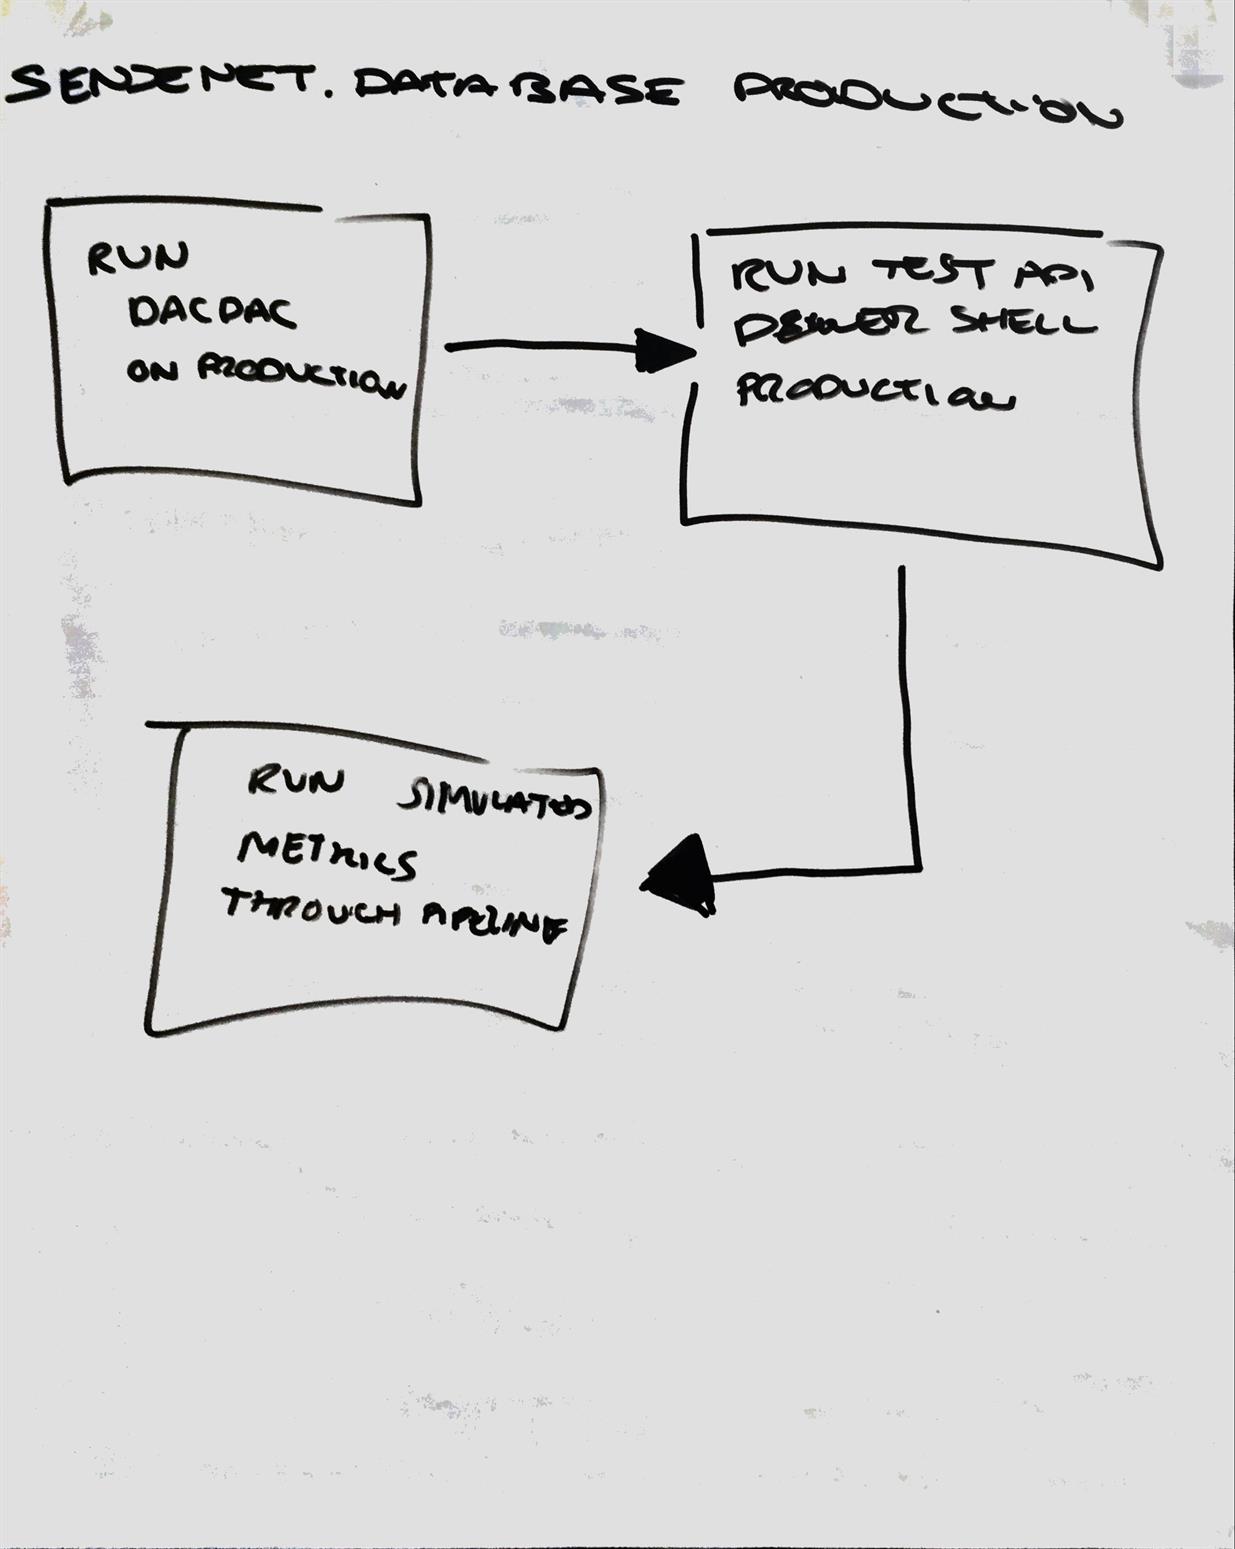 SENSENET. DATABASE PRODUCTION
RUN
DACDAC
ON PRODUCTION
RUN TEST API
SHELL
PRODUCTION
RUN SIMULATED
METRICS
THROUGH PIPELINE